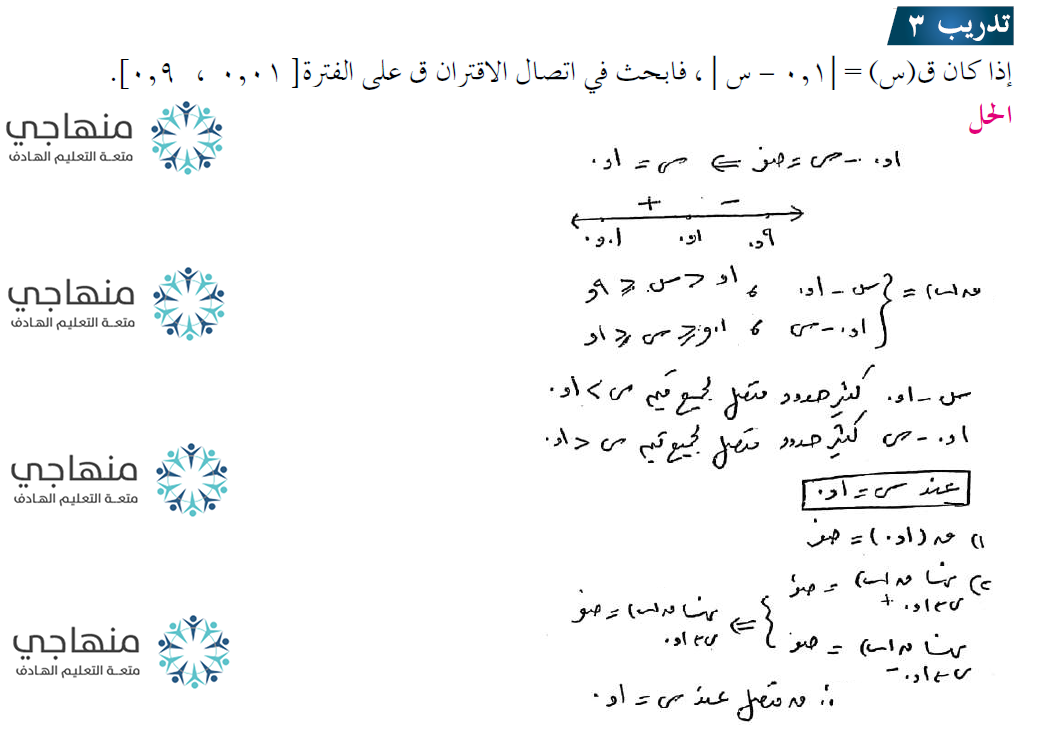 تدريب ٣
إذا كان ق(س) = |٠,١ – س| ، فابحث في اتصال الاقتران ق على الفترة [٠,٠١ ، ٠,٩].
الحل
منهاجي
متعة التعليم الهادف
٠,١ - س = صفر ⇐ س = ٠,١
+ -
٠,٠١ ٠,١ ٠,٩
منهاجي
متعة التعليم الهادف
ق(س) = { س - ٠,١ ، ٠,١ < س ≤ ٠,٩
٠,١ - س ، ٠,٠١ ≤ س ≤ ٠,١
س - ٠,١ كثير حدود متصل لجميع قيم س > ٠,١
٠,١ - س كثير حدود متصل لجميع قيم س < ٠,١
منهاجي
متعة التعليم الهادف
عند س = ٠,١
١) ق(٠,١) = صفر
٢) نهـا ق(س) = صفر
س←٠,١+
نهـا ق(س) = صفر
س←٠,١-
} ⇐ نهـا ق(س) = صفر
س←٠,١
منهاجي
متعة التعليم الهادف
∴ ق متصل عند س = ٠,١